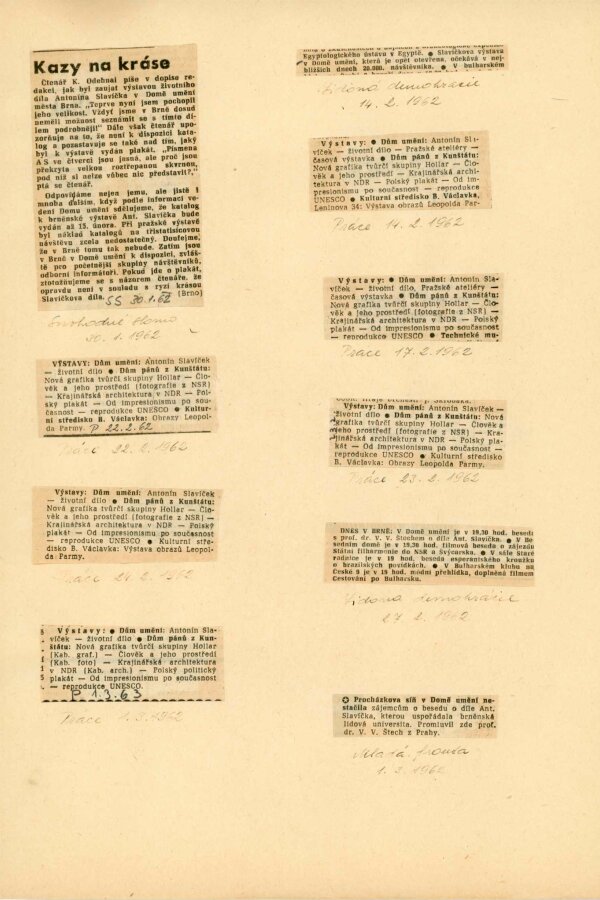 Kazy na kráse
Čtenář K. Odehnal píše v dopise re-
dakci, jak byl zaujat výstavou životního
díla Antonína Slavíčka v Domě umění
města Brna. „Teprve nyní jsem pochopil
jeho velikost. Vždyť jsme v Brně dosud
neměli možnost seznámit se s tímto dí-
lem podrobněji!" Dále však čtenář upo-
zorňuje na to, že není k dispozici kata-
log a pozastavuje se také nad tím, jaký
byl k výstavě vydán plakát. „Písmena
A S ve čtverci jsou jasná, ale proč jsou
překryta velkou roztřepanou skvrnou,
pod níž si nelze vůbec nic představit?,"
ptá se čtenář.
Odpovídáme nejen jemu, ale jistě i
mnoha dalším, když podle informací ve-
dení Domu umění sdělujeme, že katalog
k brněnské výstavě Ant. Slavíčka bude
vydán až 15. února. Při pražské výstavě
byl náklad katalogů na třistatisícovou
návštěvu zcela nedostatečný. Doufejme,
že v Brně tomu tak nebude. Zatím jsou
v Brně v Domě umění k dispozici, zvláš-
tě pro početnější skupiny návštěvníků,
odborní informátoři. Pokud jde o plakát,
ztotožňujeme se s názorem čtenáře, že
opravdu není v souladu s ryzí krásou
Slavíčkova díla. (Brno)
SS 30.1.62
Svobodné slovo
30. 1. 1962
VÝSTAVY: Dům umění: Antonín Slavíček
— životní dílo ● Dům pánů z Kunštátu:
Nová grafika tvůrčí skupiny Hollar — Člo-
věk a jeho prostředí (fotografie z NSR)
— Krajinářská architektura v NDR — Polský
plakát — Od impresionismu po sou-
časnost — reprodukce UNESCO ● Kultur-
ní středisko B. Václavka: Obrazy Leopol-
da Parmy. P 22.2.62
Práce 22. 2. 1962
Výstavy: Dům umění: Antonín Slavíček
— životní dílo ● Dům pánů z Kunštátu:
Nová grafika tvůrčí skupiny Hollar — Člo-
věk a jeho prostředí (fotografie z NSR) —
Krajinářská architektura v NDR — Polský
plakát — Od impresionismu po současnost
— reprodukce UNESCO ● Kulturní stře-
disko B. Václavka: Výstava obrazů Leopol-
da Parmy.
Práce 1962
Výstavy: ● Dům umění: Antonín Sla-
víček — životní dílo ● Dům pánů z Kun-
štátu: Nová grafika tvůrčí skupiny Hollar
(Kab. graf.) — Člověk a jeho prostředí
(Kab. foto) — Krajinářská architektura
v NDR (Kab. arch.) — Polský politický
plakát — Od impresionismu po současnost
— reprodukce UNESCO.
P 1.3.63
Práce 1. 3. 1962
Egyptologického ústavu v Egyptě. ● Slavíčkova výstava
v Domě umění, která je opět otevřena, očekává v nej-
bližších dnech 20.000. návštěvníka. ● V bulharském
Lidová demokracie
14. 2. 1962
Výstavy: ● Dům umění: Antonín Sla-
víček — životní dílo — Pražské ateliéry —
časová výstavka ● Dům pánů z Kunštátu:
Nová grafika tvůrčí skupiny Hollar — Člo-
věk a jeho prostředí — Krajinářská archi-
tektura v NDR — Polský plakát — Od im-
presionismu po současnost — reprodukce
UNESCO ● Kulturní středisko B. Václavka,
Leninova 34: Výstava obrazů Leopolda Par-
Práce 14. 2. 1962
Výstavy: ● Dům umění: Antonín Sla-
víček — životní dílo, Pražské ateliéry —
časová výstavka ● Dům pánů z Kunštátu:
Nová grafika tvůrčí skupiny Hollar — Člo-
věk a jeho prostředí (fotografie z NSR) —
Krajinářská architektura v NDR — Polský
plakát — Od impresionismu po současnost
— reprodukce UNESCO ● Technické mu-
Práce 17. 2. 1962
Výstavy: ● Dům umění: Antonín Slavíček
— životní dílo ● Dům pánů z Kunštátu:
Nová grafika tvůrčí skupiny Hollar — Člověk a
jeho prostředí (fotografie z NSR) — Kra-
jinářská architektura v NDR — Polský pla-
kát — Od impresionismu po současnost —
reprodukce UNESCO ● Kulturní středisko
B. Václavka: Obrazy Leopolda Parmy.
Práce 23. 2. 1962
DNES V BRNĚ: V Domě umění je v 19,30 hod. beseda
s prof. dr. V. V. Štechem o díle Ant. Slavíčka. ● V Be-
sedním domě je v 19,30 hod. filmová beseda o zájezdu
Státní filharmonie do NSR a Švýcarska. ● V sále Staré
radnice je v 19 hod. beseda esperantského kroužku
o brazilských povídkách. ● V Bulharském klubu na
České 9 je v 19 hod. módní přehlídka, doplněná filmem
Cestování po Bulharsku.
Lidová demokracie
27. 2. 1962
✪ Procházkova síň v Domě umění ne-
stačila zájemcům o besedu o díle Ant.
Slavíčka, kterou uspořádala brněnská
lidová universita. Promluvil zde prof.
dr. V. V. Štech z Prahy.
Mladá fronta
1. 3. 1962